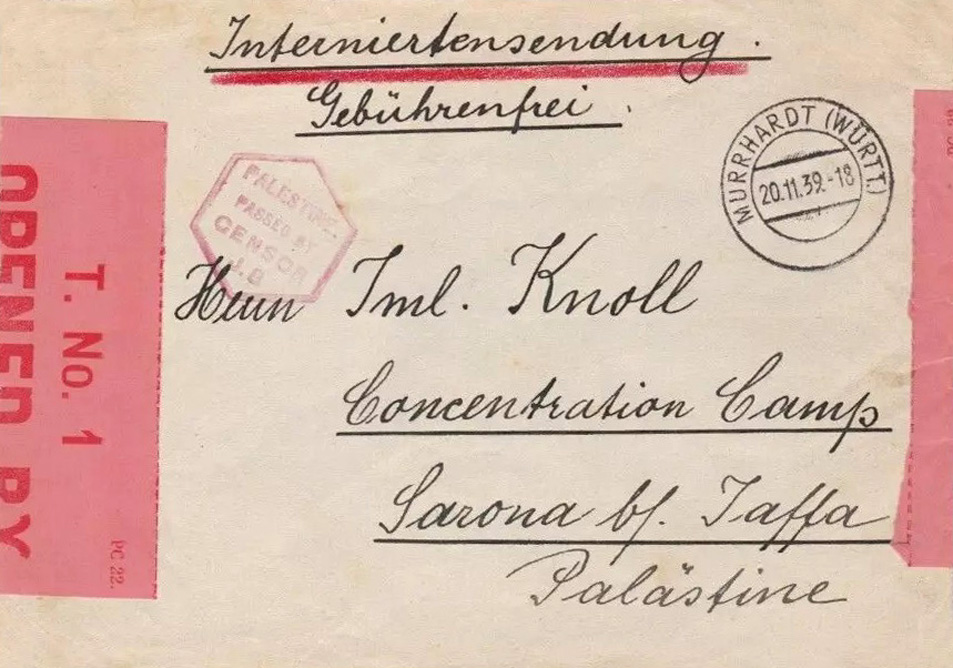 Interniertensendung.
Gebührenfrei.
MURRHARDT (WÜRTT.)
20.11.39.-18
PALESTINE.
PASSED BY
CENSOR
J.B
Herrn Iml. Knoll
Concentration Camp
Sarona b/. Jaffa
Palästine
OPENED BY
T. No. 1
PC 22.